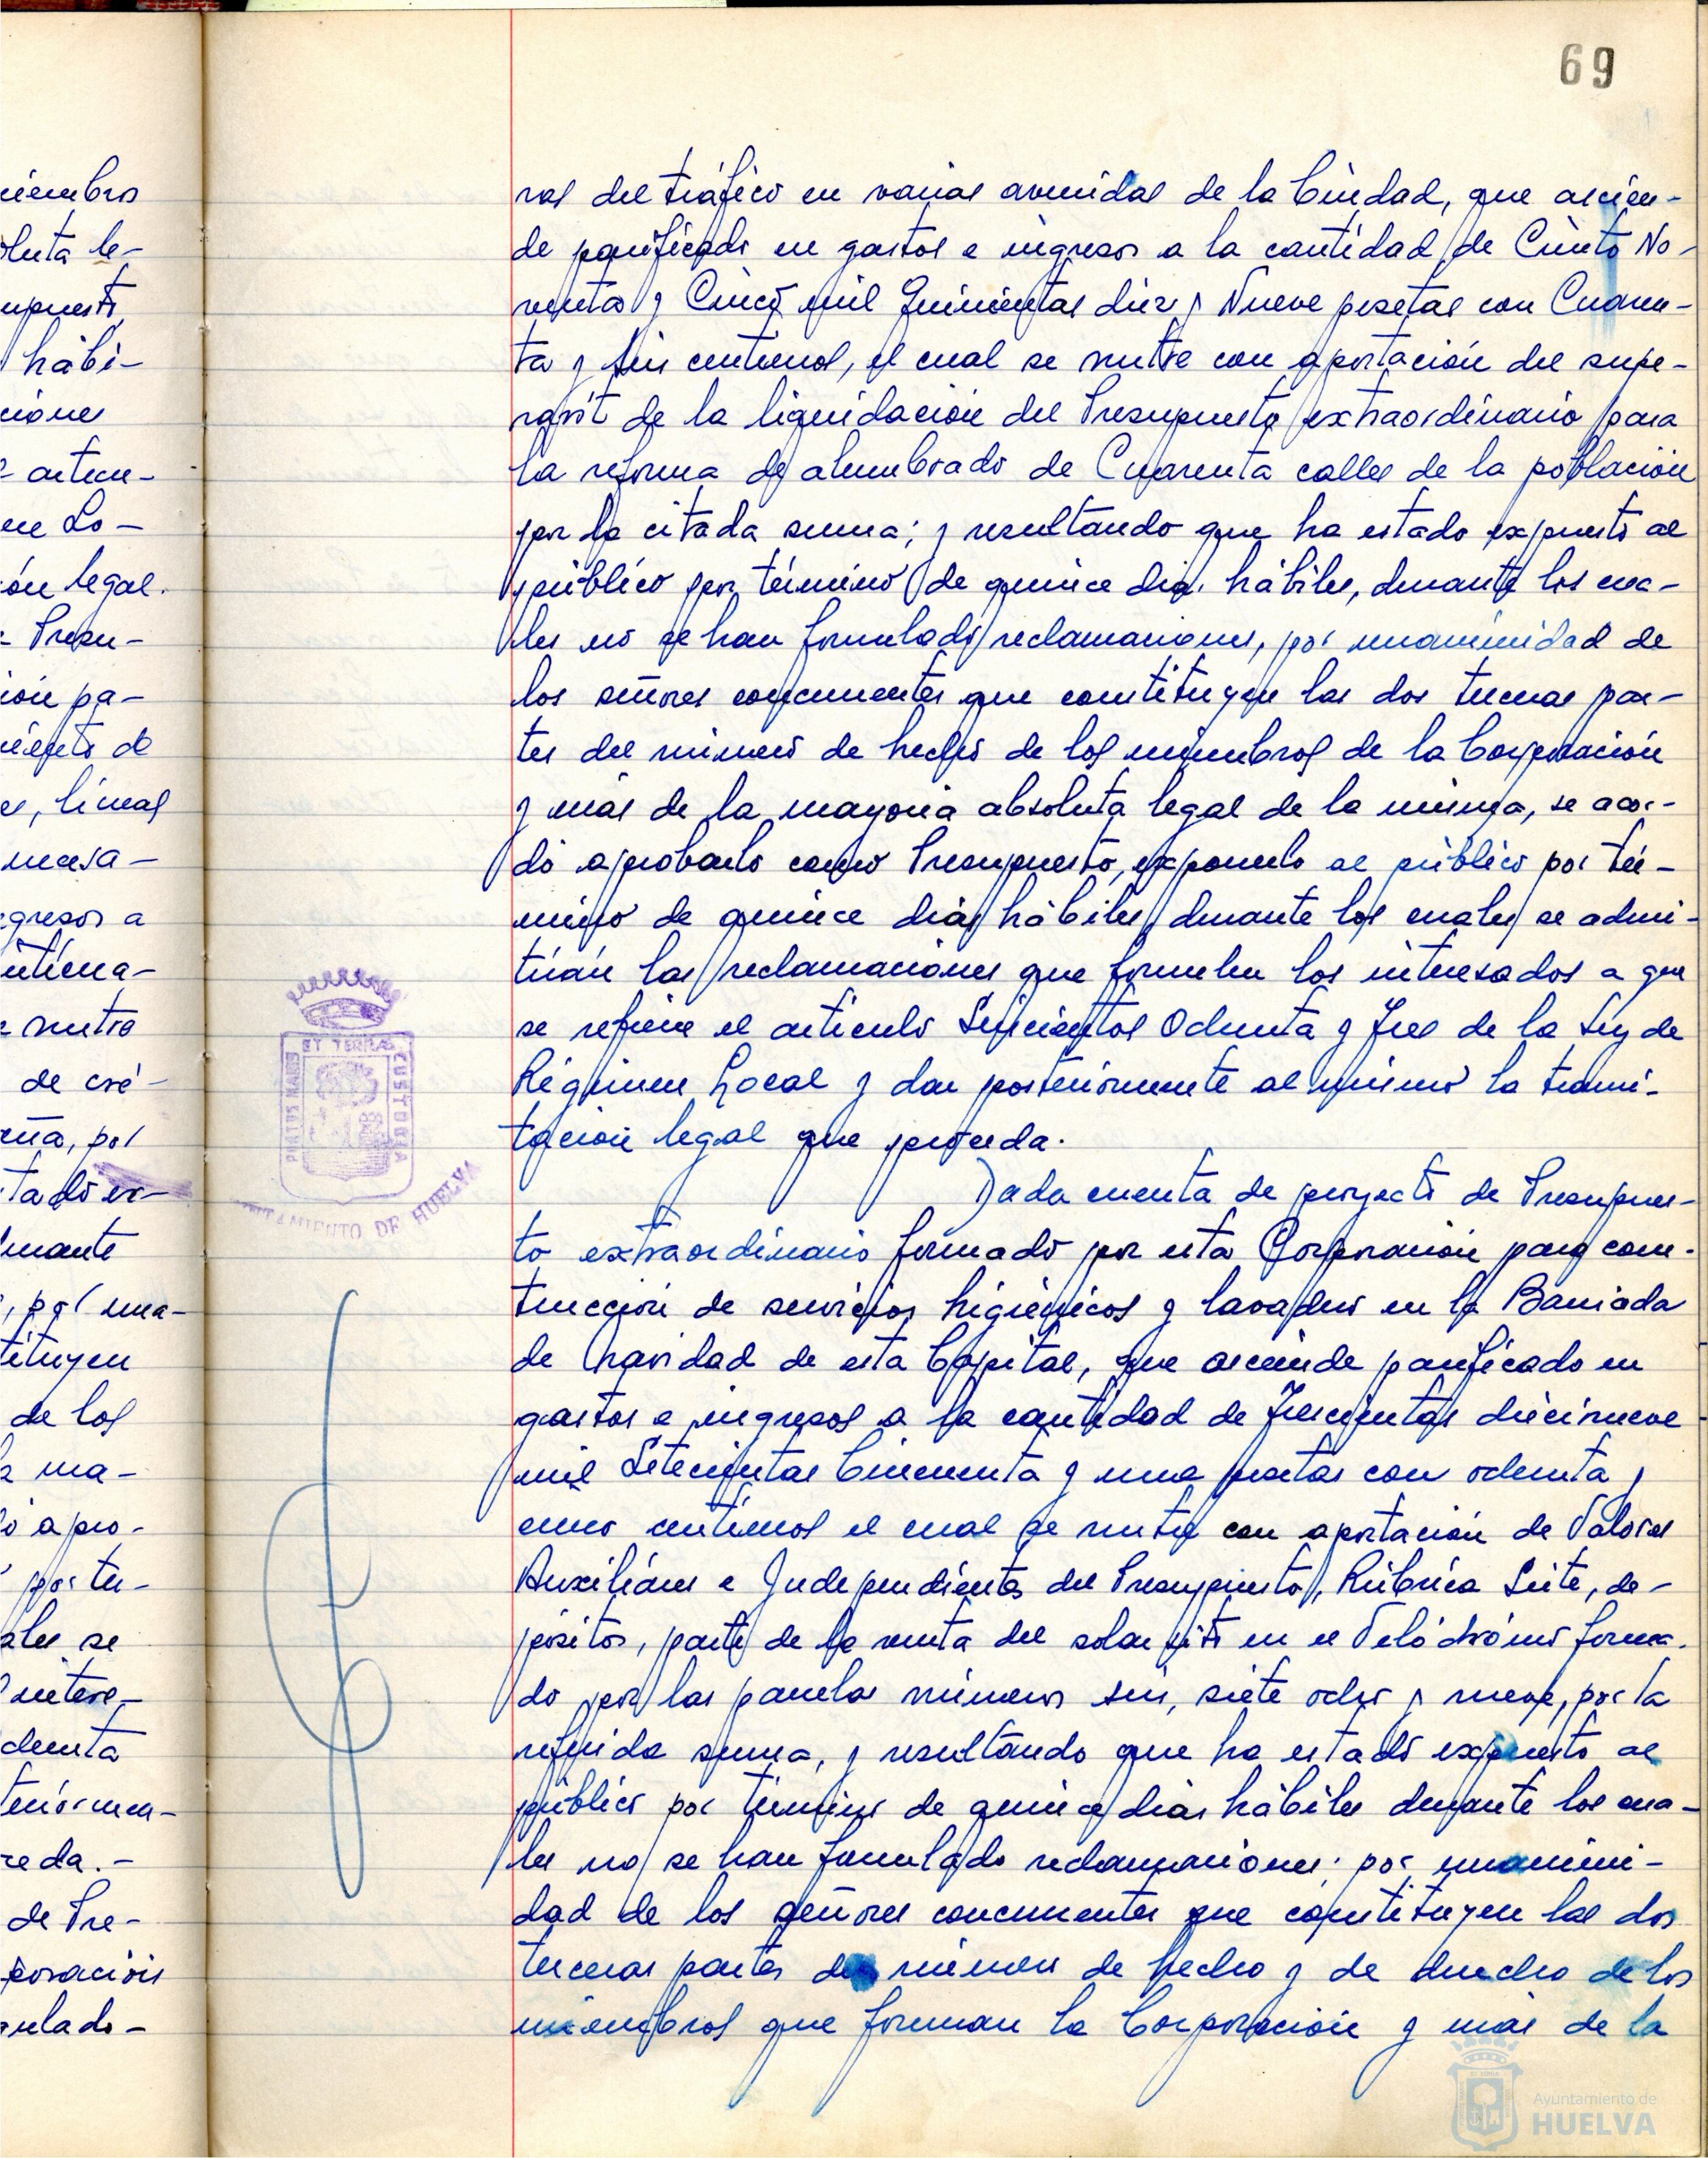 69
ras del tráfico en varias avenidas de la Ciudad, que ascien-
de panificado en gastos e ingresos a la cantidad de Ciento No-
venta y Cinco mil Quinientas diez y Nueve pesetas con Cuaren-
ta y seis centimos, el cual se nutre con aportación del supe-
ravit de la liquidación del Presupuesto extraordinario para
la reforma de alumbrado de Cuarenta calles de la población
por la citada suma; y resultando que ha estado expuesto al
público por término de quince dias hábiles, durante los cua-
les no se han formulado reclamaciones, por unanimidad de
los señores concurrentes que constituyen las dos terceras par-
tes del número de hecho de los miembros de la Corporación
y más de la mayoria absoluta legal de la misma, se acor-
dó aprobarlo como Presupuesto, exponerlo al público por tér-
mino de quince dias hábiles, durante los cuales se admi-
tirán las reclamaciones que formulen los interesados a que
se refiere el articulo Seiscientos Ochenta y Tres de la Ley de
Régimen Local y dar posteriormente al mismo la trami-
tación legal que proceda.
Dada cuenta de proyecto de Presupues-
to extraordinario formado por esta Corporación para cons-
trucción de servicios higiénicos y lavaderos en la Barriada
de Navidad de esta Capital, que asciende panificado en
gastos e ingresos a la cantidad de Trescientas diecinueve
mil Setecientas Cincuenta y una pesetas con ochenta y
cinco centimos el cual se nutre con aportación de Valores
Auxiliares e Independientes del Presupuesto, Rúbrica Siete, de-
pósitos, parte de la venta del solar sito en el Velódromo forma-
do por las parcelas números seis, siete ocho y nueve, por la
referida suma, y resultando que ha estado expuesto al
público por término de quince dias hábiles durante los cua-
les no se han formulado reclamaciones; por unanimi-
dad de los señores concurrentes que constituyen las dos
terceras partes del número de hecho y de derecho de los
miembros que forman la Corporación y más de la
PORTUS MARIS ET TERRAS CUSTODIA
AYUNTAMIENTO DE HUELVA
Ayuntamiento de
HUELVA